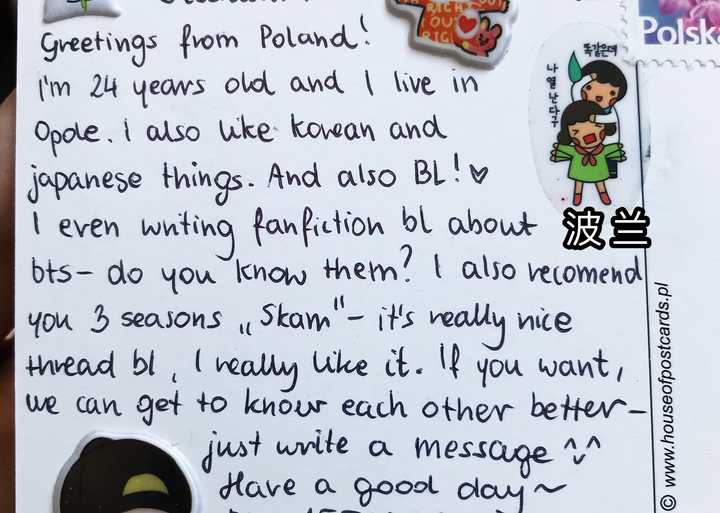 Greetings from Poland!
I'm 24 years old and I live in
Opole. I also like korean and
japanese things. And also BL! ♡
I even writing fanfiction bl about
bts- do you know them? I also recomend
you 3 seasons „Skam"- it's really nice
thread bl, I really like it. If you want,
we can get to know each other better-
just write a message ^^
Have a good day~
RIGH
OUT
RIGH
똑같은데
나 열 난다구
波兰
Polska
© www.houseofpostcards.pl